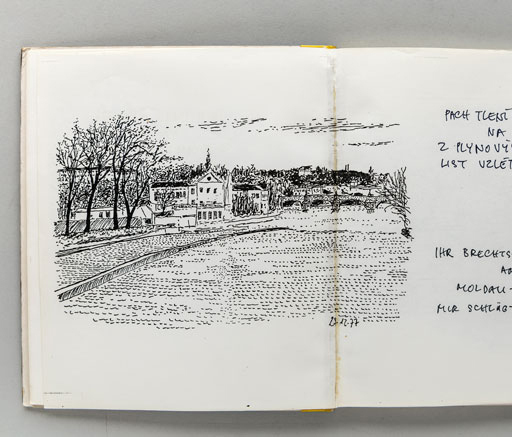 PACH TLENÍ
NA
Z PLYNOVÝ
LIST VZLÉT
IHR BRECHTS
MOLDAU-
MIR SCHLÄG
77